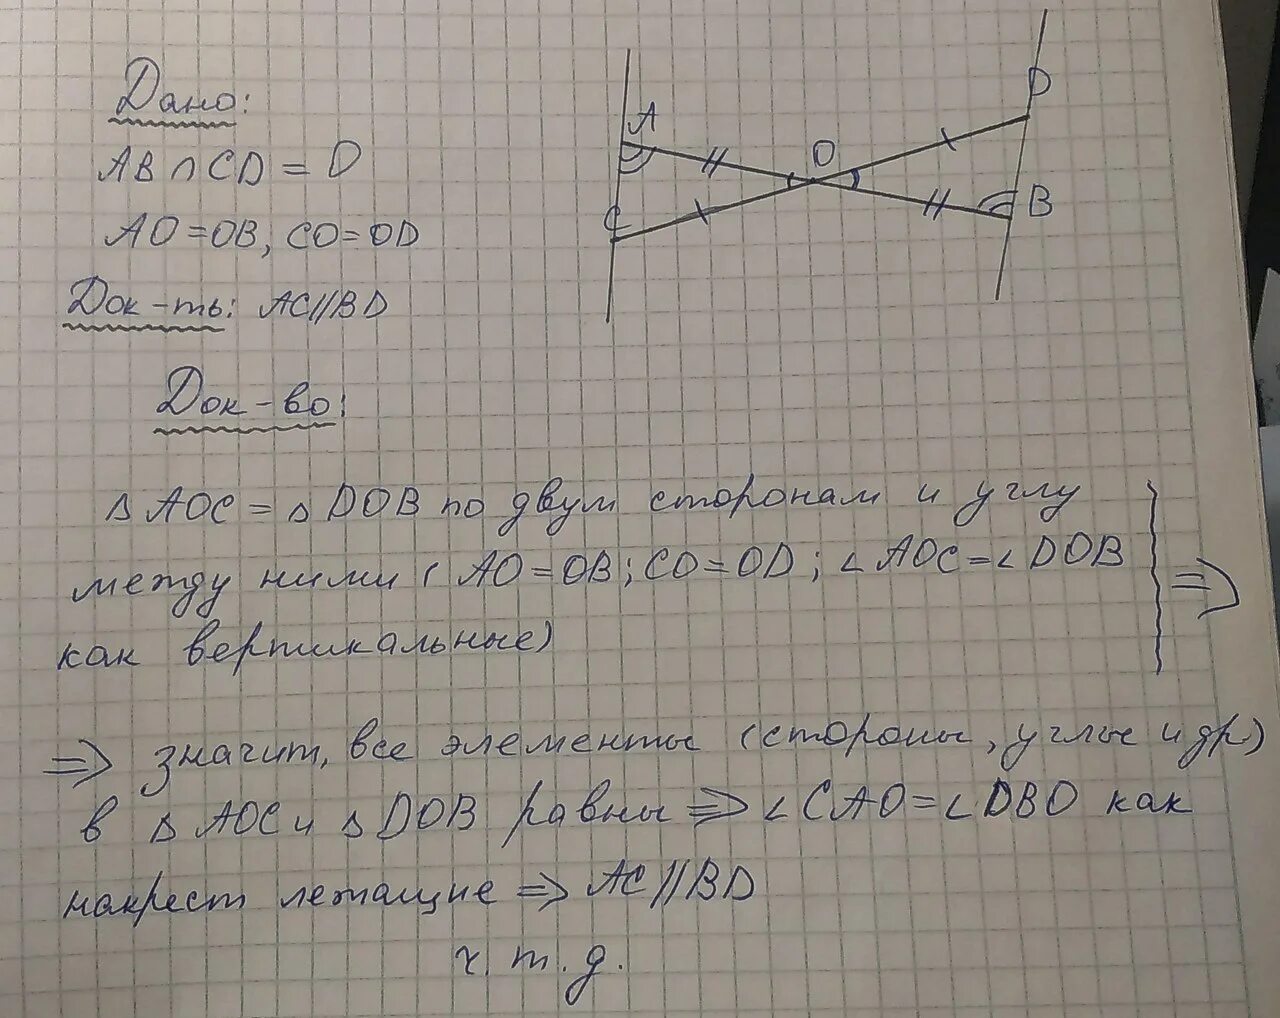 Дано:
AB ∩ CD = O
AO = OB, CO = OD
Док-ть: AC//BD
A
O
D
C
B
Док-во:
△ AOC = △ DOB по двум сторонам и углу
между ними ( AO = OB ; CO = OD ; ∠ AOC = ∠ DOB
как вертикальные)
⇒
⇒ значит, все элементы (стороны, углы и др.)
в △ AOC и △ DOB равны ⇒ ∠ CAO = ∠ DBO как
накрест лежащие ⇒ AC//BD
ч. т. д.